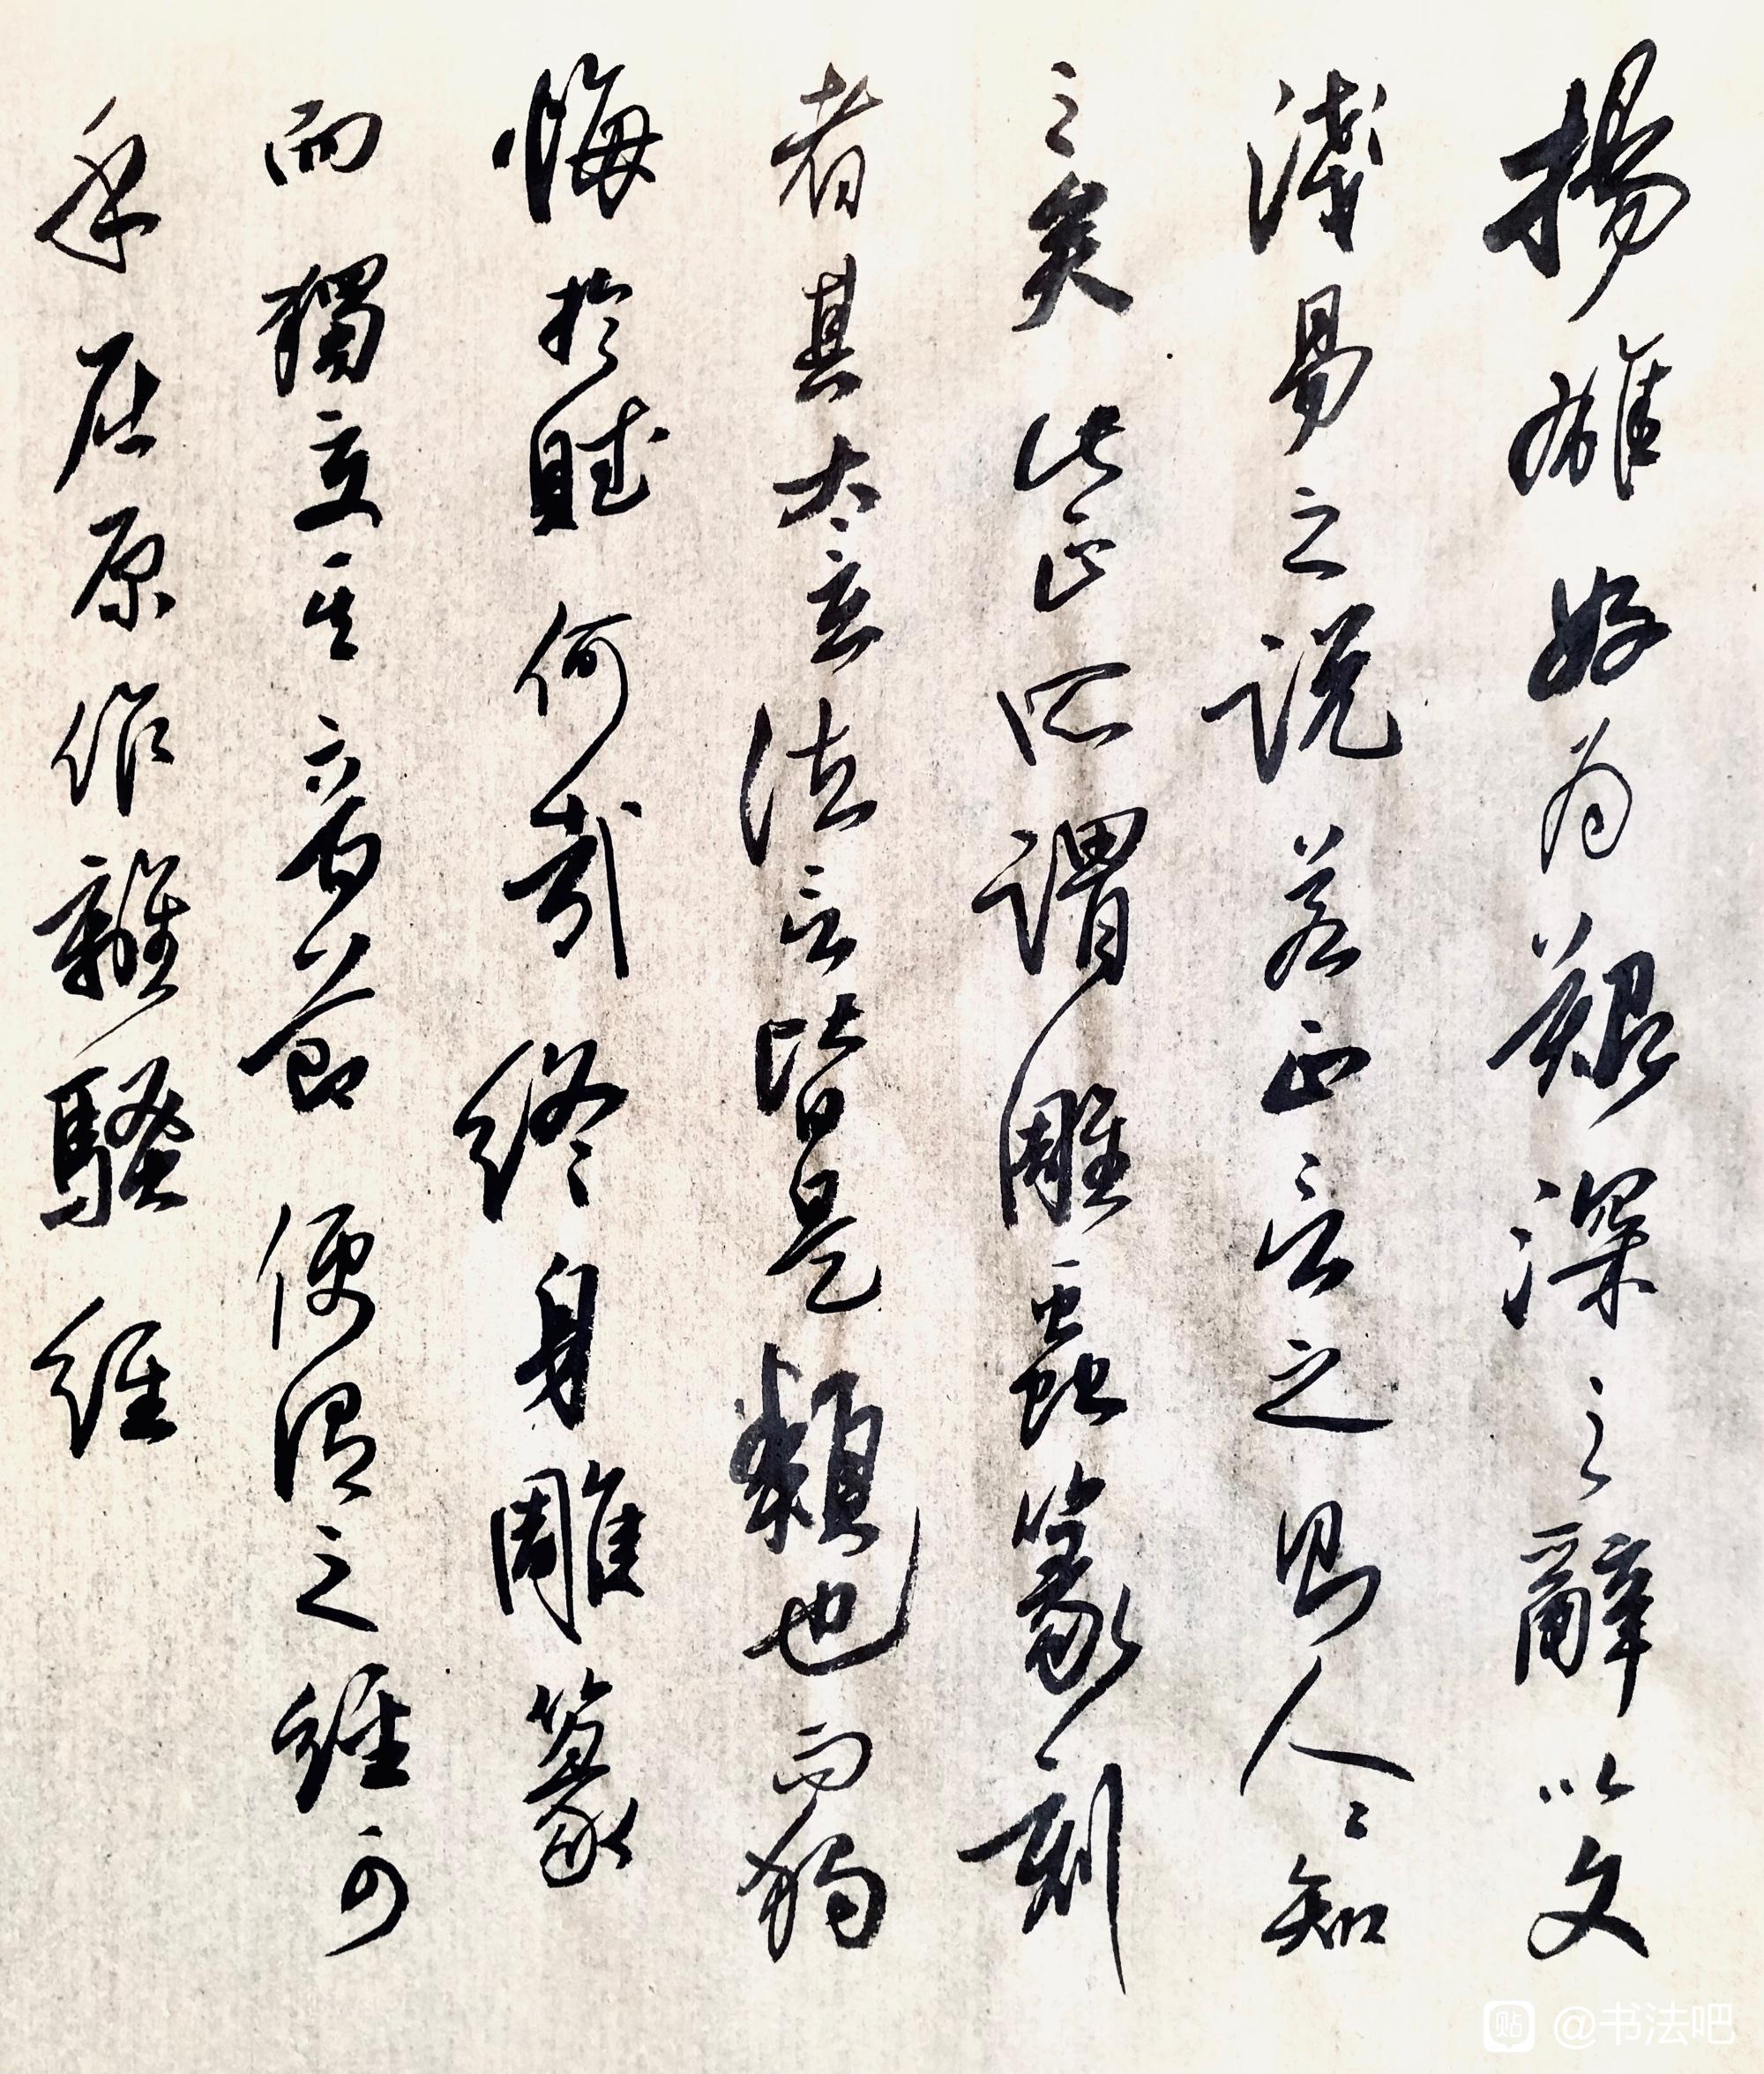 揚雄好為艱深之辭以文
淺易之說若正言之則人々知
之矣此正所謂雕蟲篆刻
者其太玄法言皆是類也而獨
悔於賦何哉終身雕篆
而獨變其音節便謂之經可
乎屈原作離騷經
贴 @书法吧